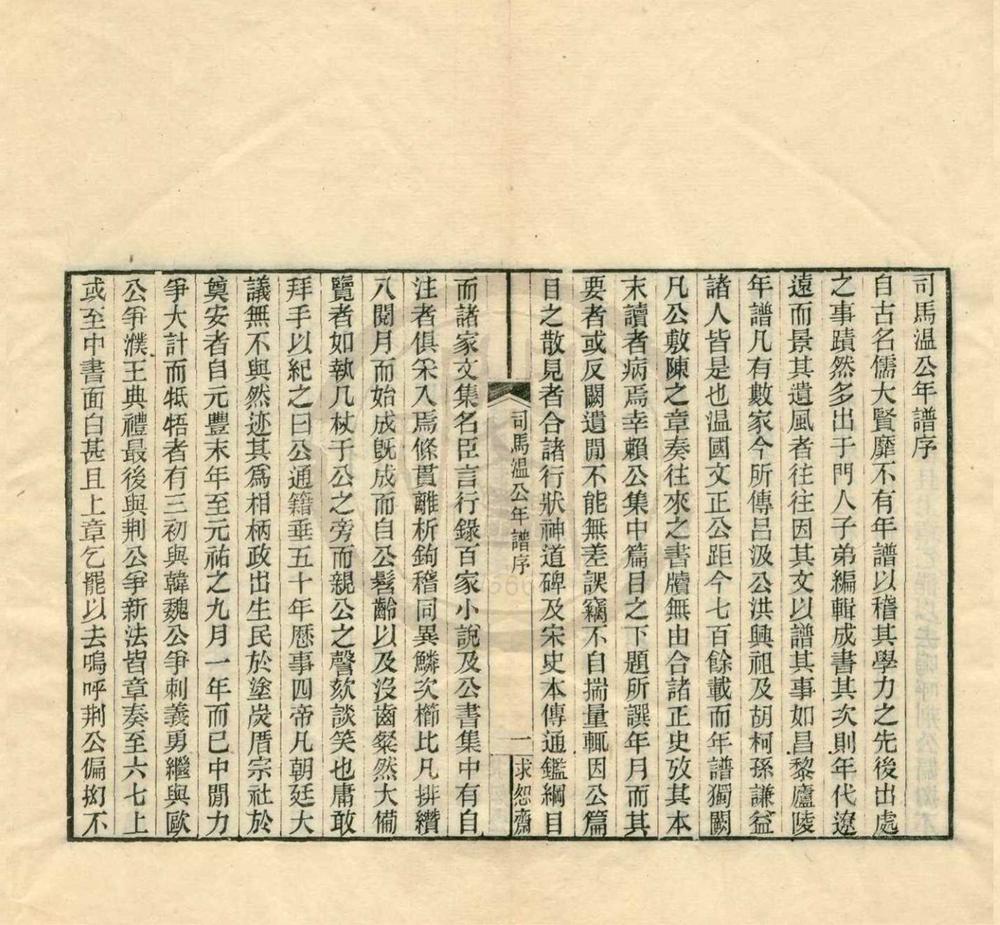 司馬溫公年譜序
自古名儒大賢靡不有年譜以稽其學力之先後出處
之事蹟然多出于門人子弟編輯成書其次則年代遼
遠而景其遺風者往往因其文以譜其事如昌黎廬陵
年譜凡有數家今所傳呂汲公洪興祖及胡柯孫謙益
諸人皆是也溫國文正公距今七百餘載而年譜獨闕
凡公敷陳之章奏往來之書牘無由合諸正史攷其本
末讀者病焉幸賴公集中篇目之下題所譔年月而其
要者或反闕遺閒不能無差誤竊不自揣量輒因公篇
目之散見者合諸行狀神道碑及宋史本傳通鑑綱目
司馬溫公年譜序
一
求恕齋
而諸家文集名臣言行錄百家小說及公書集中有自
注者俱采入焉條貫離析鉤稽同異鱗次櫛比凡排纘
八閱月而始成旣成而自公髫齡以及沒齒粲然大備
覽者如執几杖于公之旁而親公之謦欬談笑也庸敢
拜手以紀之曰公通籍垂五十年歷事四帝凡朝廷大
議無不與然迹其爲相柄政出生民於塗炭厝宗社於
奠安者自元豐末年至元祐之九月一年而已中閒力
爭大計而牴牾者有三初與韓魏公爭刺義勇繼與歐
公爭濮王典禮最後與荆公爭新法皆章奏至六七上
或至中書面白甚且上章乞罷以去嗚呼荆公偏拗不